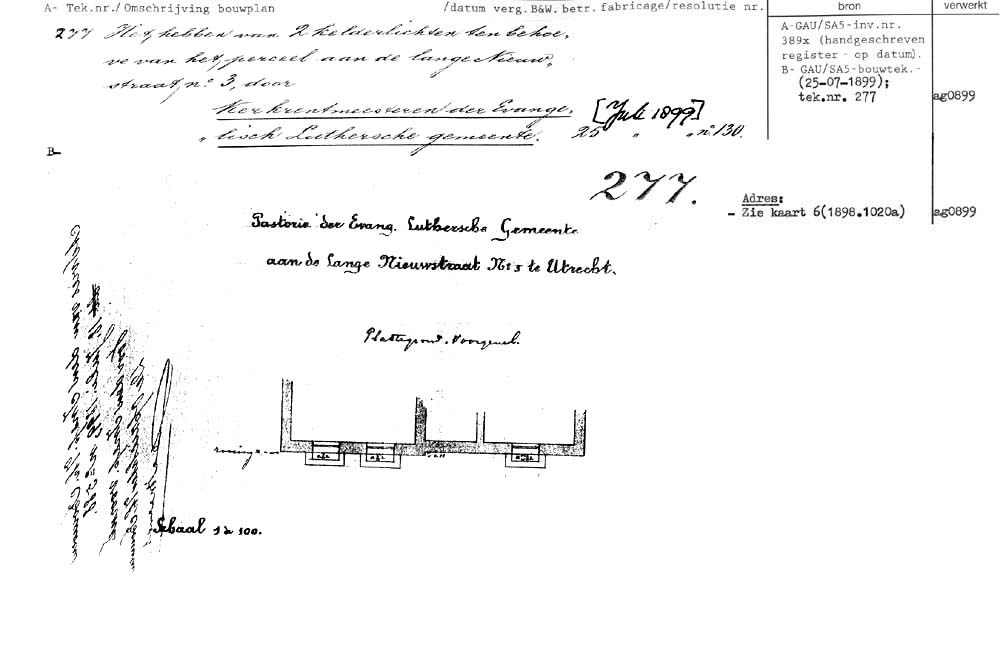 A- Tek.nr./Omschrijving bouwplan /datum verg.B&W.betr.fabricage/resolutie nr.
bron
verwerkt
277 Het hebben van 2 kelderlichten ten behoe,
ve van het perceel aan de lange Nieuw,
straat nº 3, door
Kerkrentmeesteren der Evange.
„ lisch Luthersche gemeente. 25 „ „ nº. 130.
[Juli 1899]
A-GAU/SA5-inv.nr.
389x (handgeschreven
register - op datum).
B- GAU/SA5-bouwtek.-
(25-07-1899);
tek.nr. 277
ag0899
B-
277.
Adres:
- Zie kaart 6(1898.1020a)
ag0899
Pastorie der Evang. Luthersche Gemeente
aan de Lange Nieuwstraat Nº 3 te Utrecht.
Plattegrond. Voorgevel.
Schaal 1 à 100.